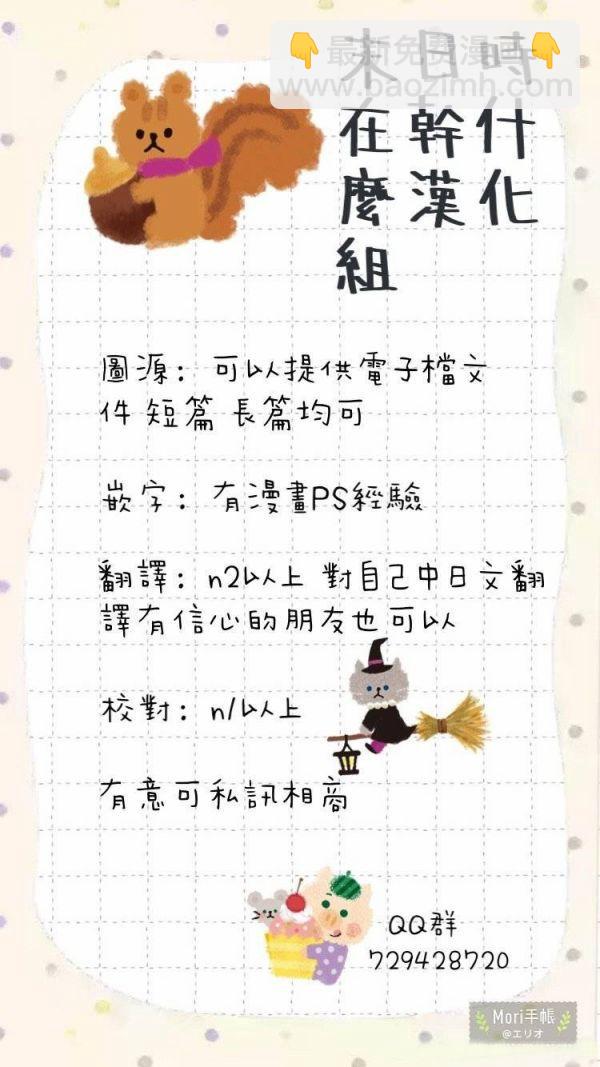 👇最新免费漫画👇
www.baozimh.com
末日時
在幹什
麼漢化
組
圖源：可以提供電子檔文
件 短篇 長篇均可
嵌字：有漫畫PS經驗
翻譯：n2以上 對自己中日文翻
譯有信心的朋友也可以
校對：n1以上
有意可私訊相商
QQ群
729428720
Mori手帳
@エリオ